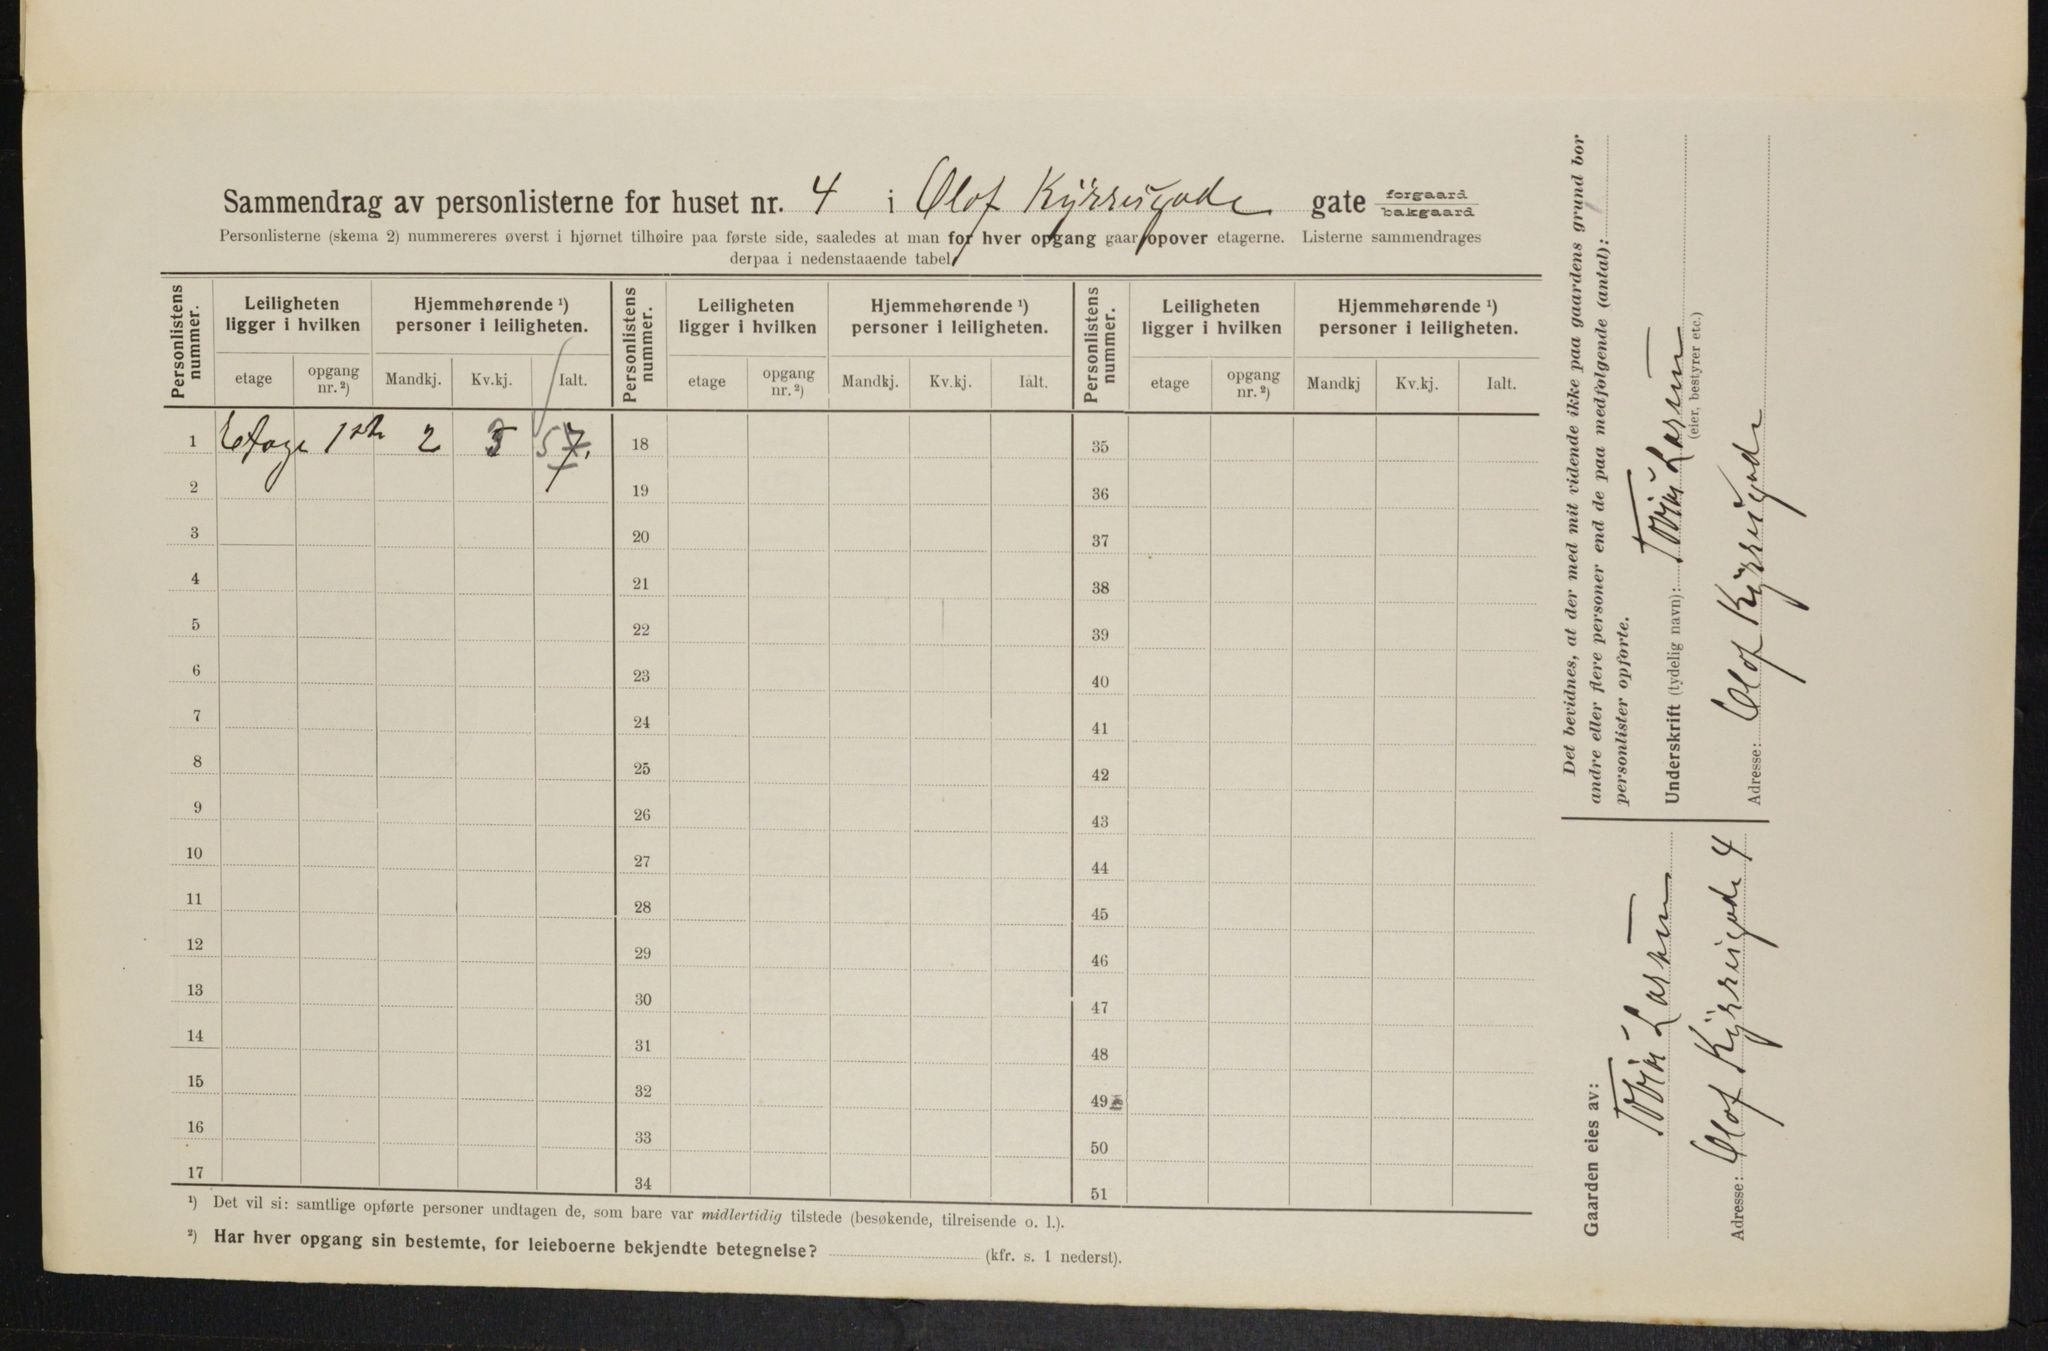 Sammendrag av personlisterne for huset nr. 4 i Olof Kÿrresgade gate forgaard bakgaard
Personlisterne (skema 2) nummereres øverst i hjørnet tilhøire paa første side, saaledes at man for hver opgang gaar opover etagerne. Listerne sammendrages
derpaa i nedenstaaende tabel
Personlistens nummer. Leiligheten ligger i hvilken Hjemmehørende ¹) personer i leiligheten. Personlistens nummer. Leiligheten ligger i hvilken Hjemmehørende ¹) personer i leiligheten. Personlistens nummer. Leiligheten ligger i hvilken Hjemmehørende ¹) personer i leiligheten.
etage opgang nr. ²) Mandkj. Kv.kj. Ialt. etage opgang nr. ²) Mandkj. Kv.kj. Ialt. etage opgang nr. ²) Mandkj Kv.kj. Ialt.
1 Etage 1ste 2 5 7. 18 35
2 19 36
3 20 37
4 21 38
5 22 39
6 23 40
7 24 41
8 25 42
9 26 43
10 27 44
11 28 45
12 29 46
13 30 47
14 31 48
15 32 49
16 33 50
17 34 51
¹) Det vil si: samtlige opførte personer undtagen de, som bare var midlertidig tilstede (besøkende, tilreisende o. l.).
²) Har hver opgang sin bestemte, for leieboerne bekjendte betegnelse? (kfr. s. 1 nederst).
Det bevidnes, at der med mit vidende ikke paa gaardens grund bor
andre eller flere personer end de paa medfølgende (antal):
personlister opførte.
Underskrift (tydelig navn): Larsen
(eier, bestyrer etc.)
Adresse: Olof Kÿrresgade
Gaarden eies av:
Larsen
Adresse: Olof Kÿrresgade 4